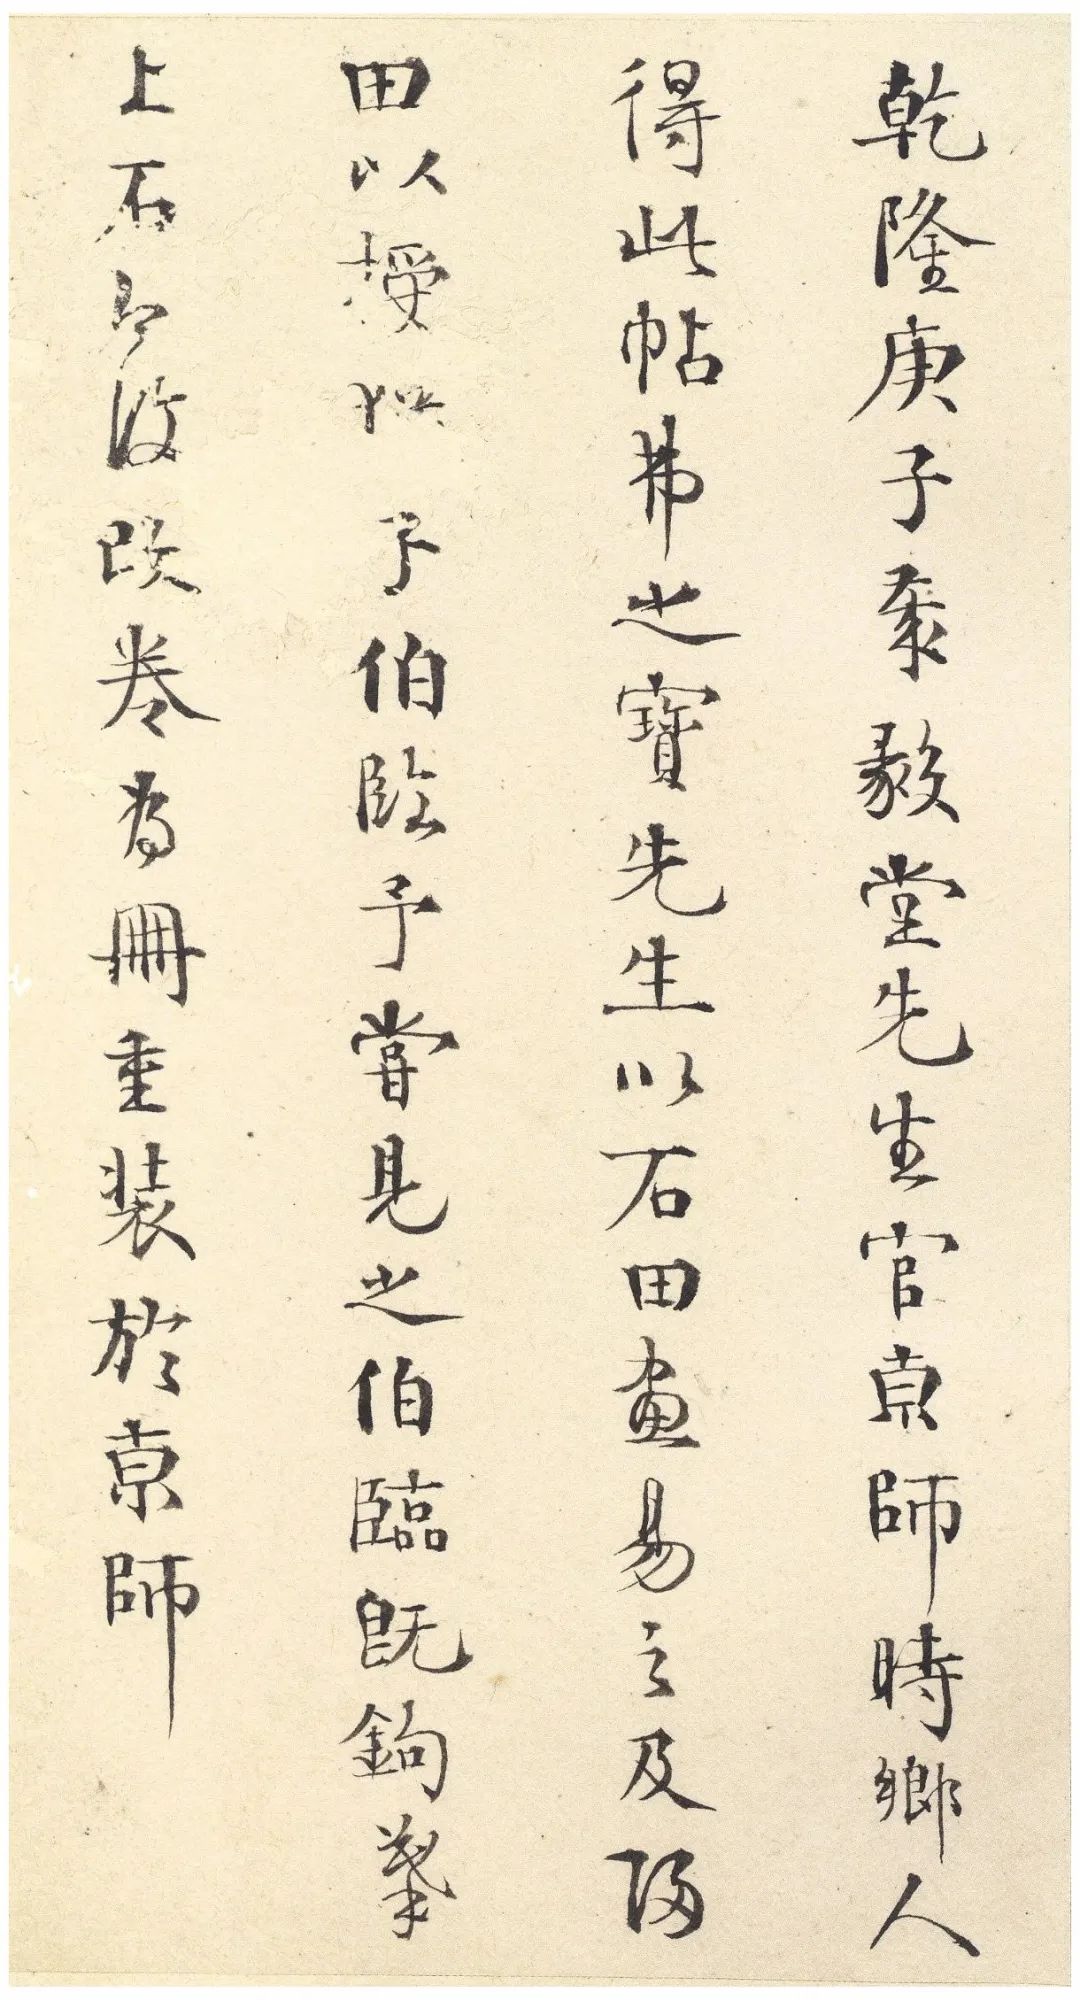 乾隆庚子毅堂先生官京師時鄉人
得此帖弗之寶先生以石田畫易之及歸
田以授子伯臨予嘗見之伯臨既鉤摹
上石即復改卷為冊重裝於京師